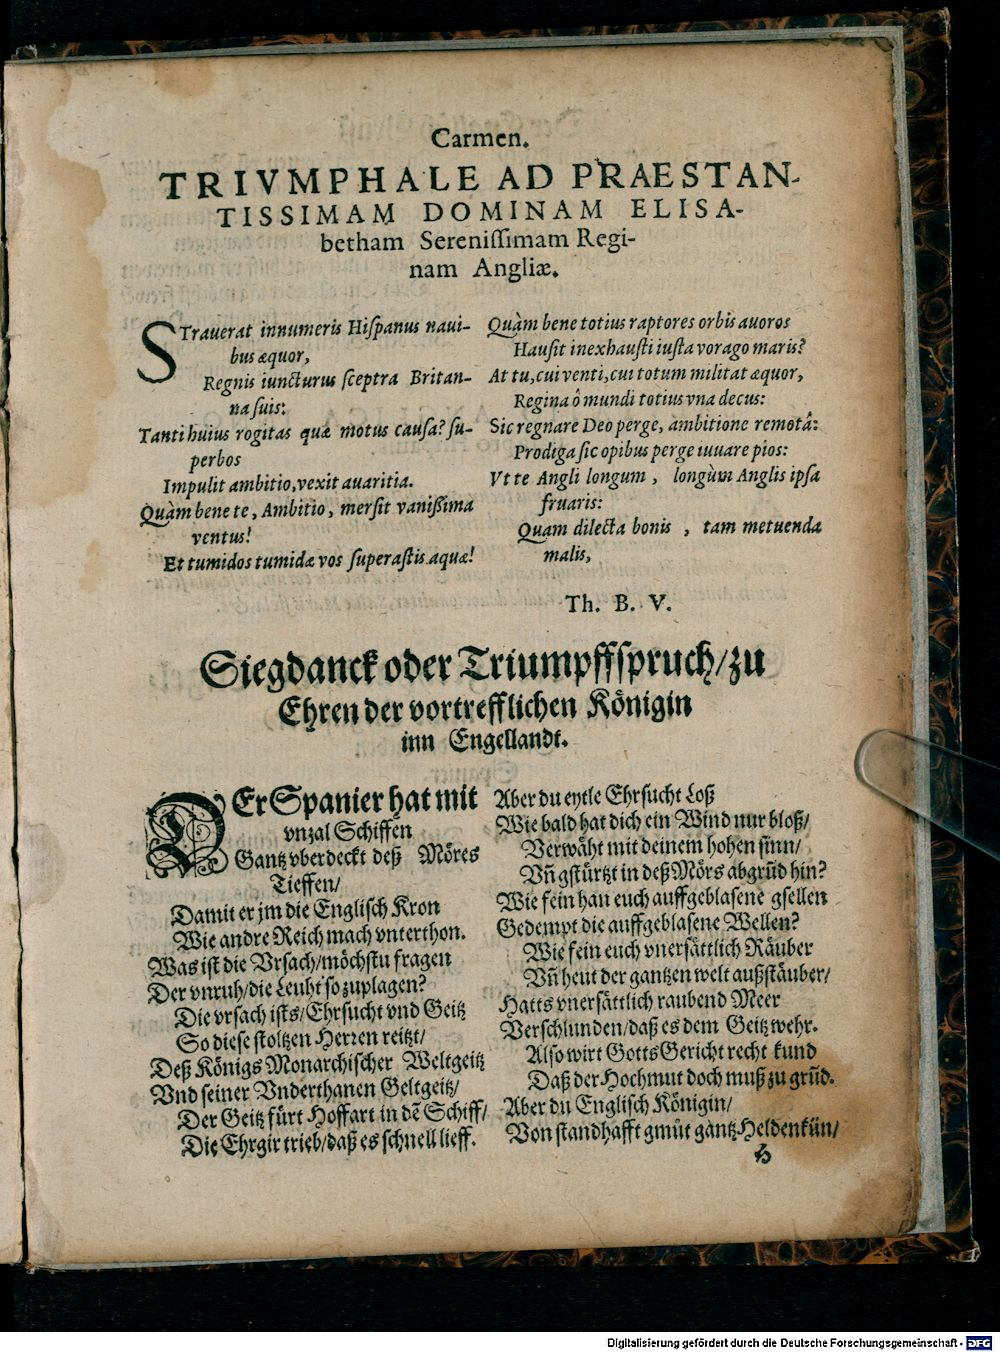 Carmen.
TRIVMPHALE AD PRAESTAN-
TISSIMAM DOMINAM ELISA-
betham Sereniſſimam Regi-
nam Angliæ.
STrauerat innumeris Hiſpanus naui-
bus æquor,
Regnis iuncturus ſceptra Britan-
na ſuis:
Tanti huius rogitas quæ motus cauſa? ſu-
perbos
Impulit ambitio, vexit auaritia.
Quàm bene te, Ambitio, merſit vaniſſima
ventus!
Et tumidos tumidæ vos ſuperaſtis aquæ!
Quàm bene totius raptores orbis auoros
Hauſit inexhauſti iuſta vorago maris?
At tu, cui venti, cui totum militat æquor,
Regina ô mundi totius vna decus:
Sic regnare Deo perge, ambitione remotâ:
Prodiga ſic opibus perge iuuare pios:
Vt te Angli longum, longùm Anglis ipſa
fruaris:
Quam dilecta bonis, tam metuenda
malis,
Th. B. V.
Siegdanck oder Triumpffſpruch/zu
Ehren der vortrefflichen Königin
inn Engellandt.
DEr Spanier hat mit
vnzal Schiffen
Gantz vberdeckt deß Möres
Tieffen/
Damit er jm die Engliſch Kron
Wie andre Reich mach vnterthon.
Was iſt die Vrſach/möchſtu fragen
Der vnruh/die Leuht ſo zuplagen?
Die vrſach iſts/Ehrſucht vnd Geitz
So dieſe ſtoltzen Herren reitzt/
Deß Königs Monarchiſcher Weltgeitz
Vnd ſeiner Vnderthanen Geltgeitz/
Der Geitz fürt Hoffart in dē Schiff/
Die Ehrgir trieb/daß es ſchnell lieff.
Aber du eytle Ehrſucht Loß
Wie bald hat dich ein Wind nur bloß/
Verwäht mit deinem hohen ſinn/
Vñ gſtürtzt in deß Mörs abgrūd hin?
Wie fein han euch auffgeblaſene gſellen
Gedempt die auffgeblaſene Wellen?
Wie fein euch vnerſättlich Räuber
Vñ heut der gantzen welt außſtäuber/
Hatts vnerſättlich raubend Meer
Verſchlunden/daß es dem Geitz wehr.
Alſo wirt Gotts Gericht recht kund
Daß der Hochmut doch muß zu grūd.
Aber du Engliſch Königin/
Von ſtandhafft gmüt gantz Heldenkün/
H
Digitalisierung gefördert durch die Deutsche Forschungsgemeinschaft - DFG